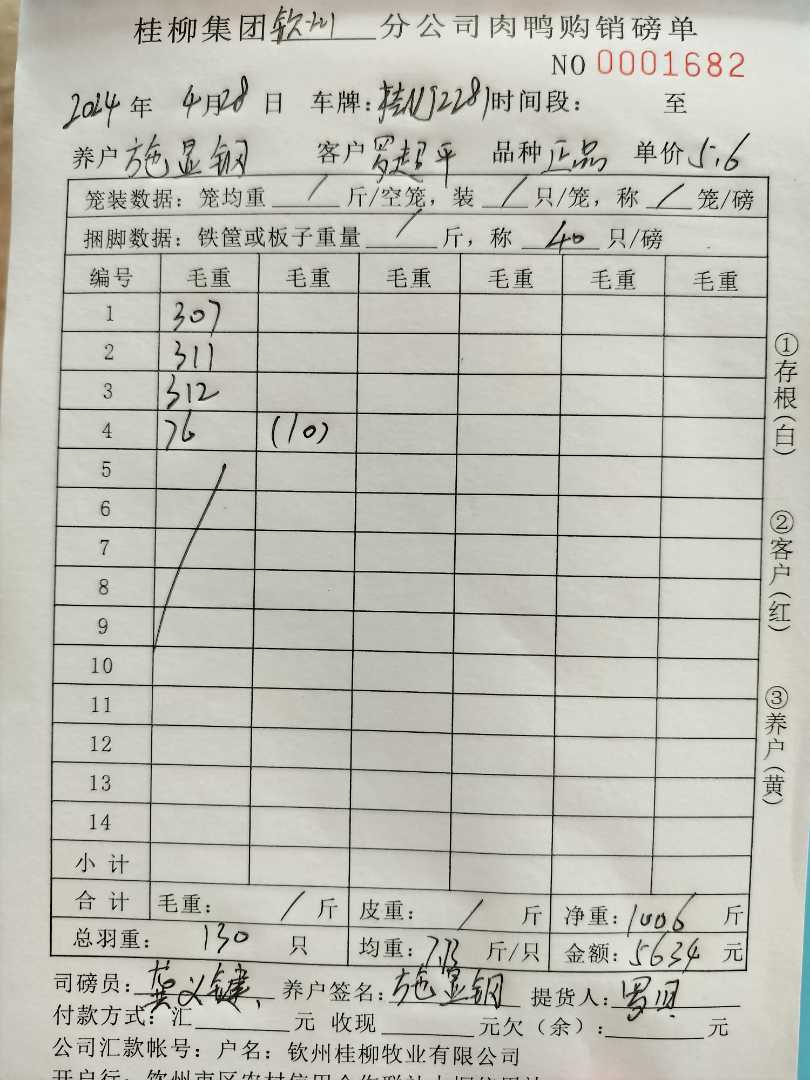 桂柳集团钦州分公司肉鸭购销磅单
NO 0001682
2024年 4月28日 车牌:桂N92281时间段: 至
养户施显钢 客户罗超平 品种正品 单价5.6
笼装数据: 笼均重 / 斤/空笼, 装 / 只/笼, 称 / 笼/磅
捆脚数据: 铁筐或板子重量 / 斤, 称 40 只/磅
编号 毛重 毛重 毛重 毛重 毛重 毛重
1 307
2 311
3 312
4 76 (10)
5
6
7
8
9
10
11
12
13
14
小计
合计 毛重: / 斤 皮重: / 斤 净重: 1006 斤
总羽重: 130 只 均重: 7.73 斤/只 金额: 5634 元
司磅员: 黄义键 养户签名: 施显钢 提货人: 罗
付款方式: 汇 元 收现 元欠(余): 元
公司汇款帐号: 户名: 钦州桂柳牧业有限公司
开户行: 钦州市区农村信用合作联社
①存根(白)
②客户(红)
③养户(黄)